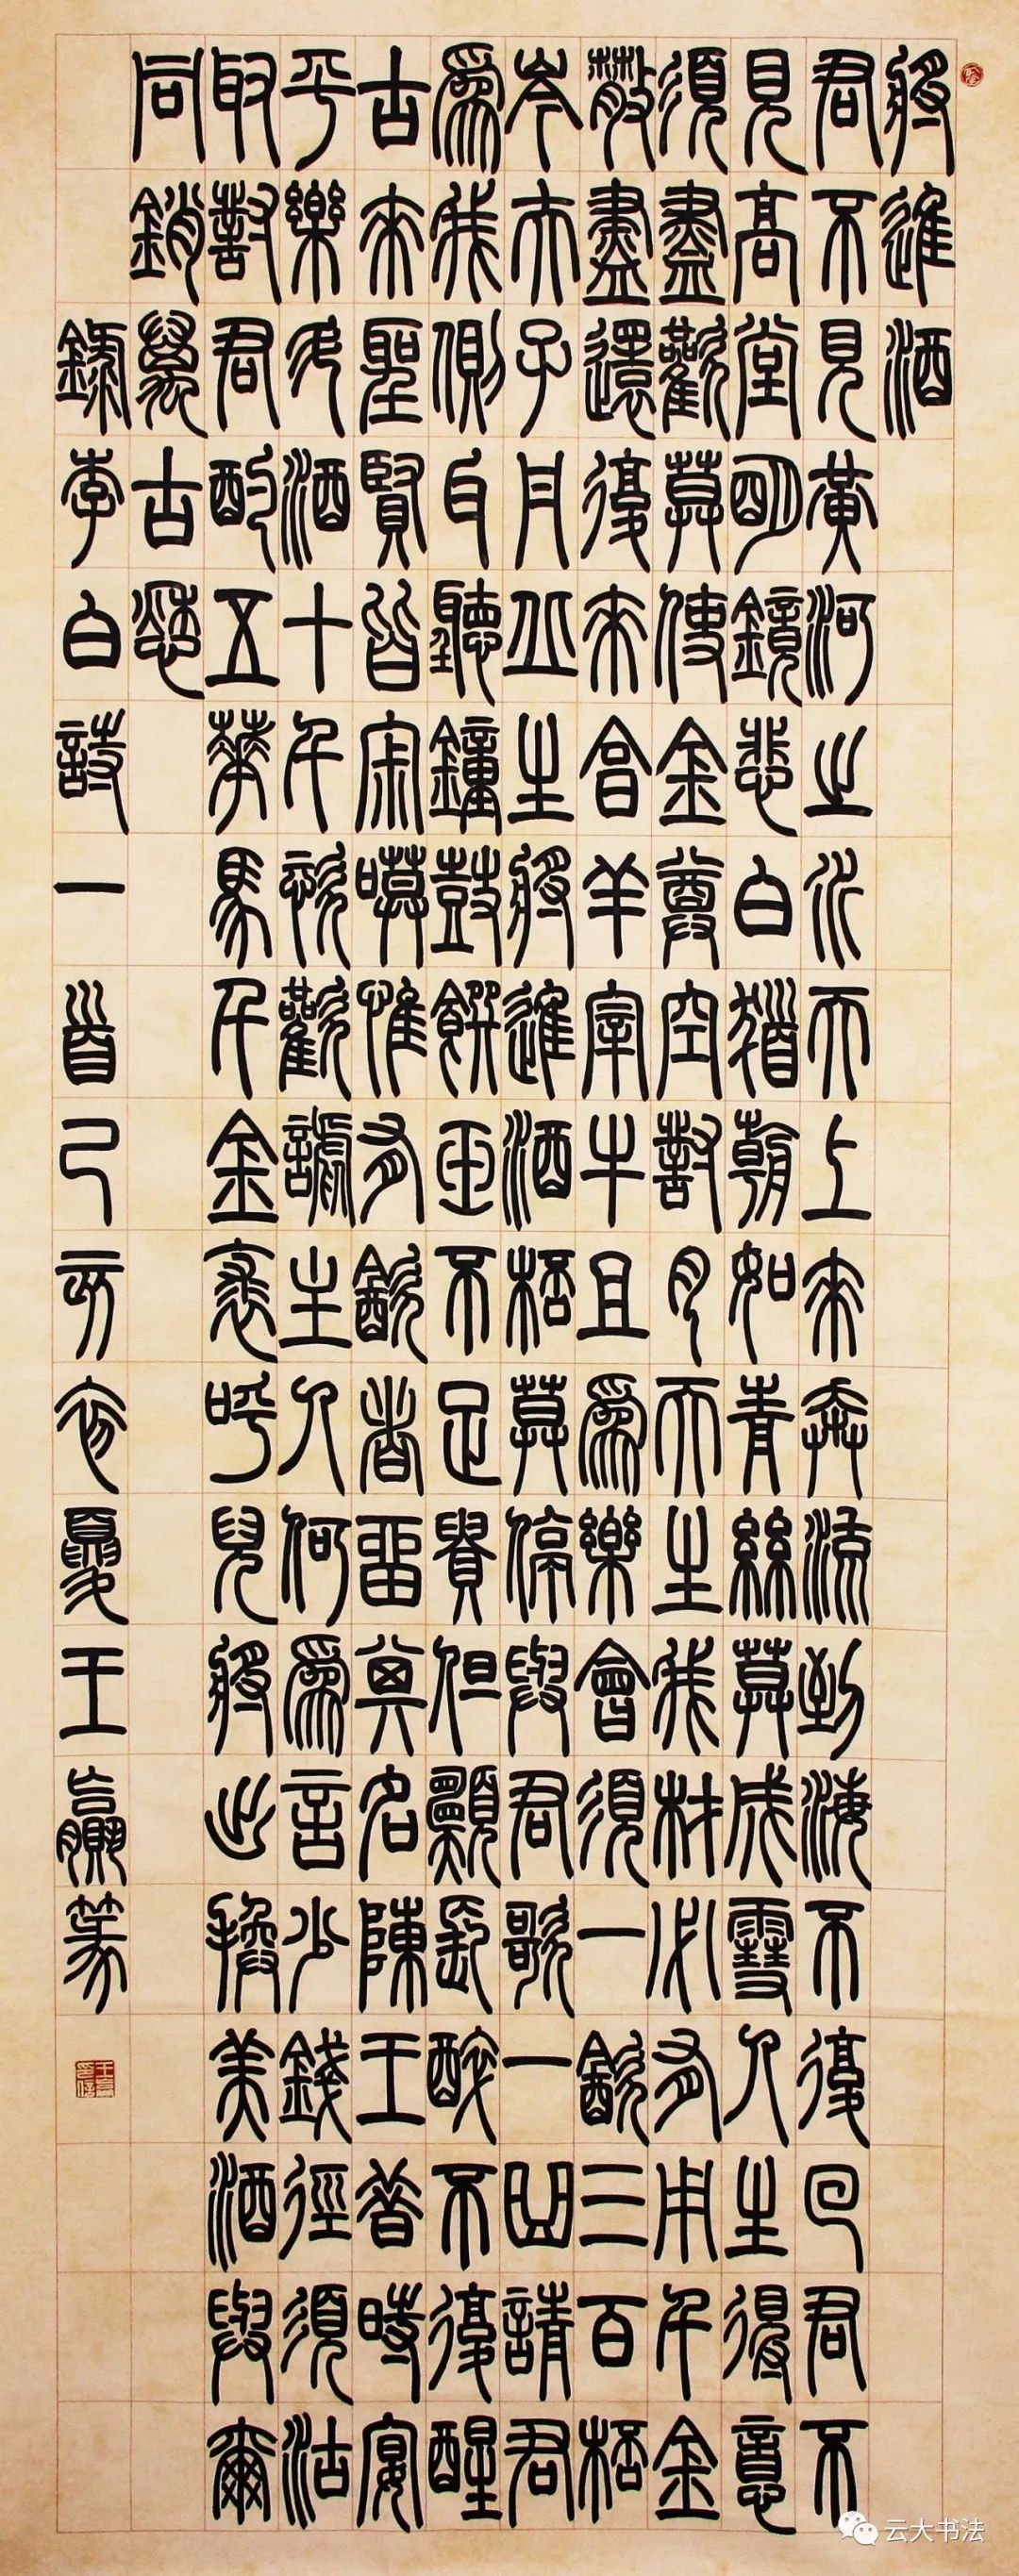 將進酒
君不見黃河之水天上來奔流到海不復回君不
見高堂明鏡悲白髮朝如青絲莫成雪人生得意
須盡歡莫使金尊空對月天生我材必有用千金
散盡還復來亯羊宰牛且為樂會須一飲三百桮
岑夫子丹丘生將進酒桮莫停與君歌一曲請君
為我側耳聽鐘鼓饌玉不足貴但願長醉不復醒
古來聖賢皆宋嗼惟有飲者留其名陳王昔時宴
平樂斗酒十千恣歡謔主人何為言少錢徑須沽
取對君酌五華馬千金裘呼兒將出換美酒與爾
同銷萬古愁
錄李白詩一首己亥初夏王篆
云大书法